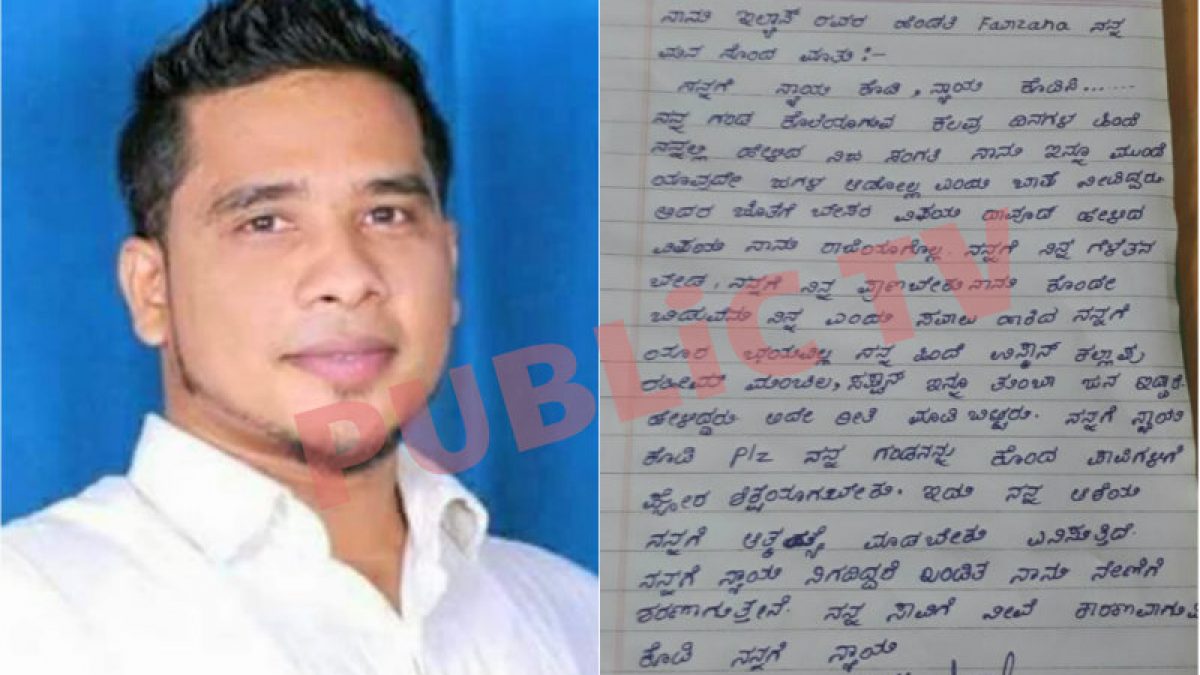 ನಾನು ಇಲ್ಯಾಸ್ ರವರ ಹೆಂಡತಿ Farzana ನನ್ನ
ಮನ ನೊಂದ ಮಾತು :-
ನನ್ನಗೆ ನ್ಯಾಯ ಕೊಡಿ, ನ್ಯಾಯ ಕೊಡಿಸಿ......
ನನ್ನ ಗಂಡ ಕೊಲೆಯಾಗುವ ಕೆಲವು ದಿನಗಳ ಹಿಂದೆ
ನನ್ನಲ್ಲಿ ಹೇಳಿದ ನಿಜ ಸಂಗತಿ ನಾನು ಇನ್ನೂ ಮುಂದೆ
ಯಾವುದೇ ಜಗಳ ಆಡೋಲ್ಲ ಎಂದು ಭಾಷೆ ನೀಡಿದ್ದರು
ಅದರ ಜೊತೆಗೆ ಬೇಸರ ವಿಷಯ ದಾವೂದ ಹೇಳಿದ
ವಿಷಯ ನಾನು ರಾಜಿಯಾಗೊಲ್ಲ. ನನ್ನಗೆ ನಿನ್ನ ಗೆಳೆತನ
ಬೇಡ, ನನ್ನಗೆ ನಿನ್ನ ಪ್ರಾಣ ಬೇಕು ನಾನು ಕೊಂದೇ
ಬಿಡುವೆನು ನಿನ್ನ ಎಂದು ಸವಾಲು ಹಾಕಿದ ನನ್ನಗೆ
ಯಾರ ಭಯವಿಲ್ಲ ನನ್ನ ಹಿಂದೆ ಕಲ್ಲಾಪು,
ಇನ್ನೂ ತುಂಬಾ ಜನ ಇದ್ದಾರೆ.
ಹೇಳಿದ್ದರು ಅದೇ ರೀತಿ ಮಾಡಿ ಬಿಟ್ಟರು. ನನ್ನಗೆ ನ್ಯಾಯ
ಕೊಡಿ Plz ನನ್ನ ಗಂಡನನ್ನು ಕೊಂದ ಪಾಪಿಗಳಿಗೆ
ಘೋರ ಶಿಕ್ಷೆಯಾಗಬೇಕು. ಇದು ನನ್ನ ಆಸೆಯ
ನನ್ನಗೆ ಆತ್ಮಹತ್ಯೆ ಮಾಡಬೇಕು ಎನಿಸುತ್ತಿದೆ.
ನನ್ನಗೆ ನ್ಯಾಯ ಸಿಗದಿದ್ದರೆ ಖಂಡಿತ ನಾನು ನೇಣಿಗೆ
ಶರಣಾಗುತ್ತೇನೆ. ನನ್ನ ಸಾವಿಗೆ ನೀವೆ ಕಾರಣವಾಗುತ್ತಿ
ಕೊಡಿ ನನ್ನಗೆ ನ್ಯಾಯ
PUBLiC TV